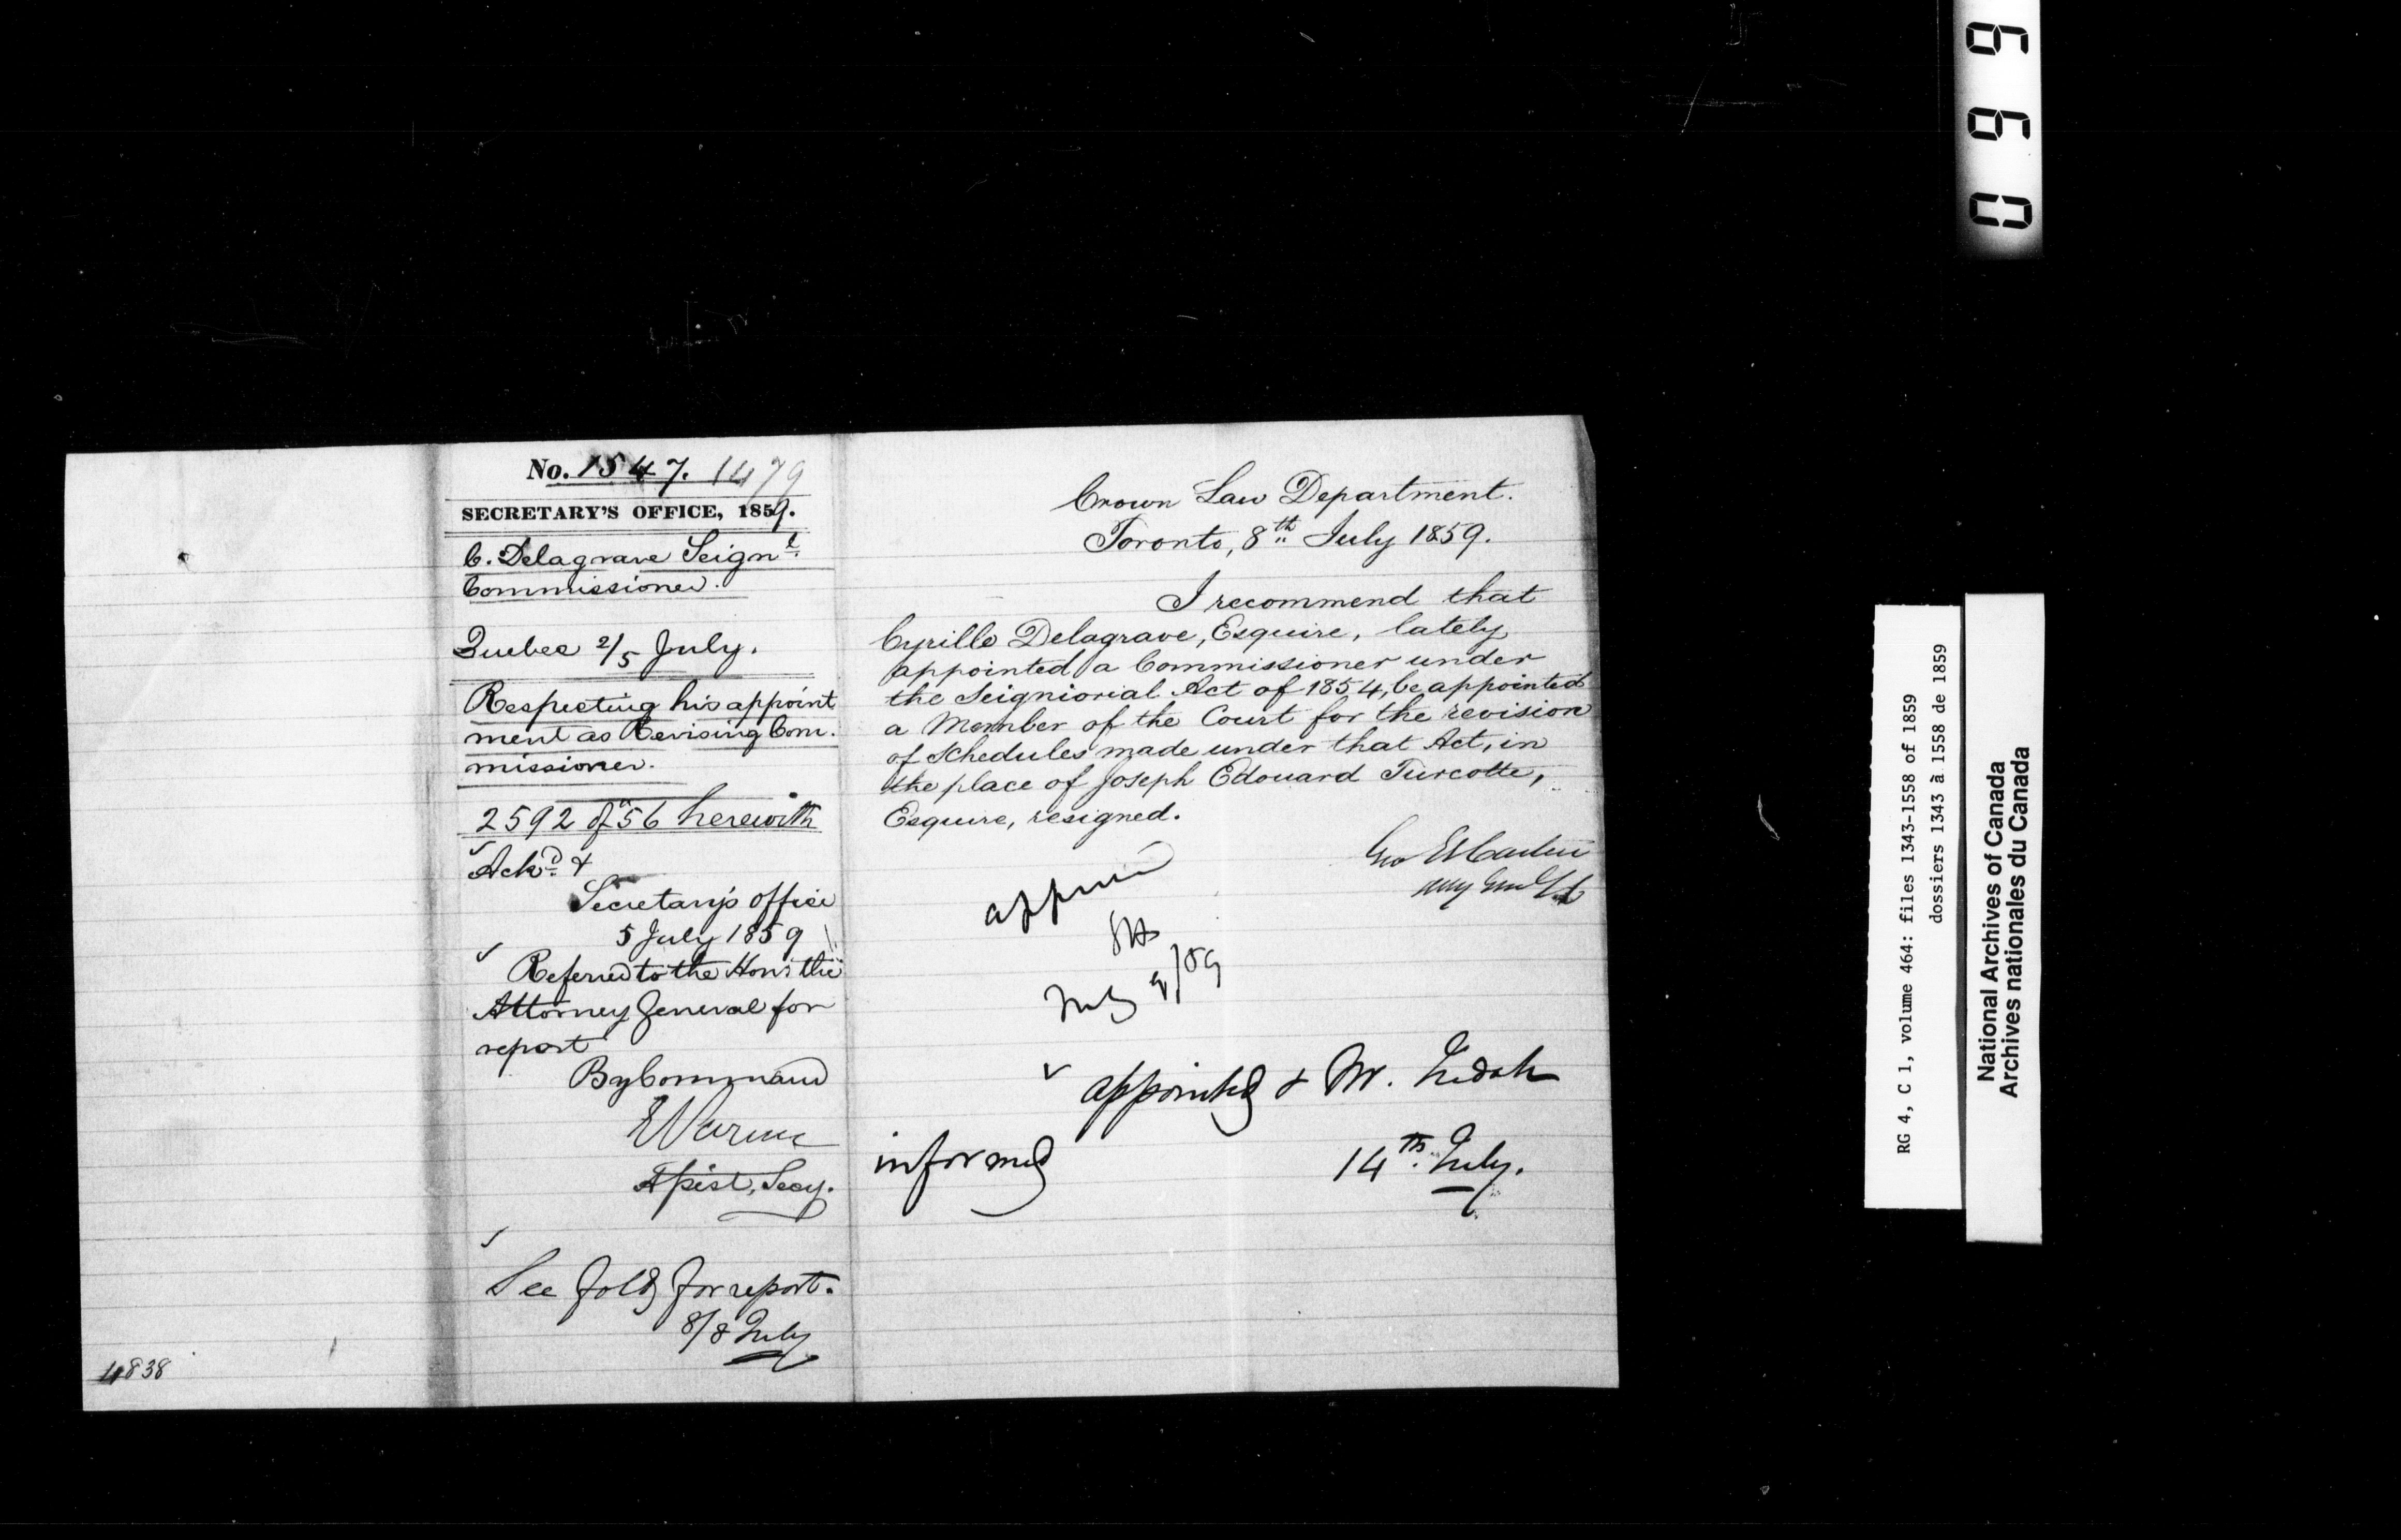 No. 1547. 1479
SECRETARY'S OFFICE, 1859.
C. Delagrave Seign<sup>l</sup>.
Commissioner.
Quebec 2/5 July.
Respecting his appoint
ment as Revising Com.
missioner.
2592 of 56 herewith
Ack<sup>d</sup> &
Secretary's office
5 July 1859
Referred to the Hon. the
Attorney General for
report
By Command
E Parent
Asist, Secy.
See fold for report.
8/8 July
4838
Crown Law Department.
Toronto, 8th July 1859.
I recommend that
Cyrille Delagrave, Esquire, lately
appointed a Commissioner under
the Seigniorial Act of 1854, be appointed
a Member of the Court for the revision
of Schedules made under that Act, in
the place of Joseph Edouard Turcotte,
Esquire, resigned.
Geo E Cartier
Atty Genl L.C.
approved
July 9/59
appointed & Mr. Judah
informed 14th. July.
0 6 9 9
RG 4, C 1, volume 464: files 1343-1558 of 1859
dossiers 1343 à 1558 de 1859
National Archives of Canada
Archives nationales du Canada